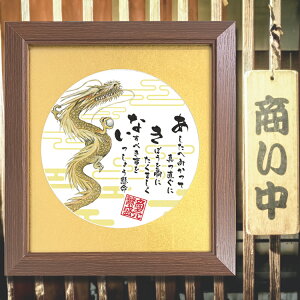 あしたへ向かって
真っ直ぐに
きぼうを胸に
たくましく
なすべき事を
いっしょう懸命
商い中